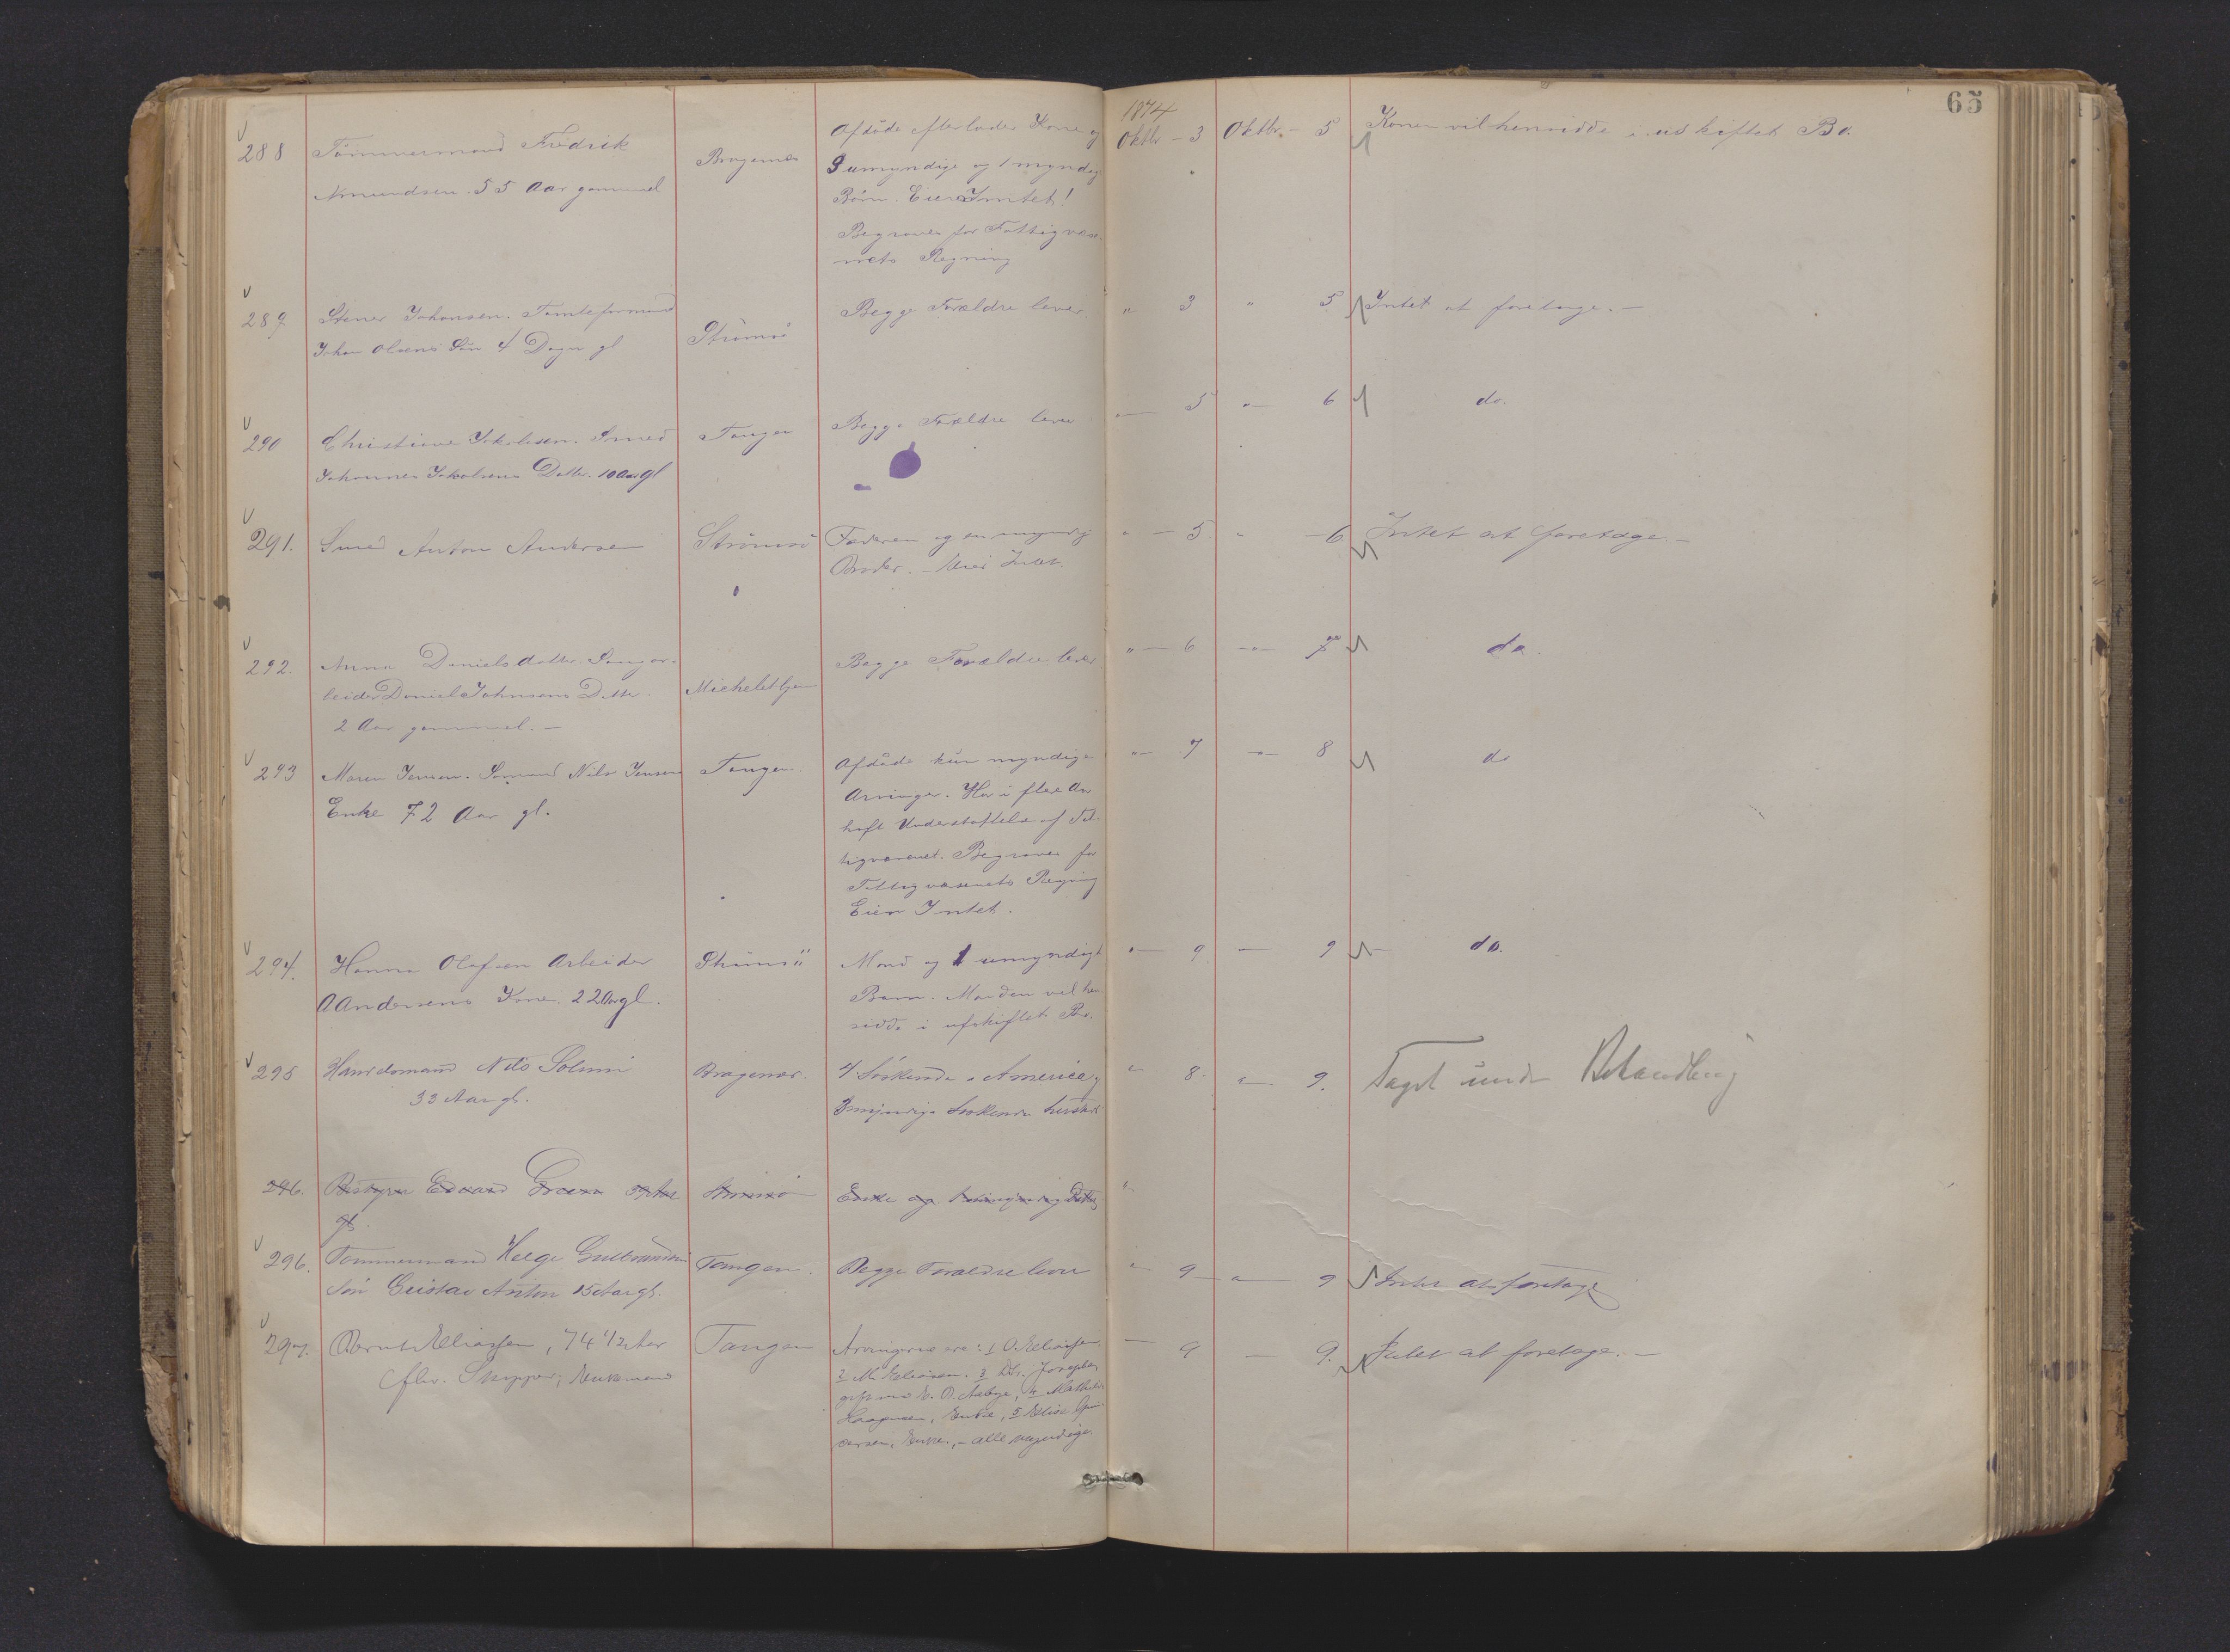 65
1874
288 Tömmermand Fredrik
Amundsen. 55 Aar gammel
Bragernæs
Afdøde efterlader Kone og
9 umyndige og 1 myndig
Börn. Eier Intet!
Begraves for Fattigvæse-
nets Regning
Oktbr - 3 Oktbr. - 5 Konen vil hensidde i uskiftet Bo.
289 Stener Johansen. Tomteformand
Johan Olsens Sön 4 Dage gl
Strömsö
Begge Forældre lever.
" 3 " 5 Intet at foretage. -
290 Christiane Jakobsen. Smed
Johannes Jakobsens Datter. 10 Aar gl
Tangen
Begge Forældre lever
" 5 " 6 do.
291. Smed Anton Andersen
Strömsö
Faderen og en myndig
Broder. - Eier Intet.
" - 5 " - 6 Intet at foretage. -
292. Anna Danielsdatter. Saugar-
beider Daniel Johnsens Datter.
2 Aar gammel. -
Begge Forældre lever
" - 6 - " - 7 do
293 Maren Jensen. Sömand Nils Jensens
Enke 72 Aar gl.
Tangen.
Afdöde kun myndige
Arvinger. Har i flere Aar
haft Understöttelse af Fat-
tigvæsenet. Begraves for
Fattigvæsenets Regning
Eier Intet.
" - 7 - " - 8 do
294. Hanna Olafsen Arbeider
A Andersens Kone. 22 Aar gl.
Strömsö
Mand og 1 umyndigt
Barn. Manden vil hen-
sidde i uskiftet Bo.
" - 9 - 9 do.
295 Handelsmand Nils Solum
33 Aar gl.
Bragernæs.
4 Söskende i America og
3 myndige Söskende
" 8. " - 9. Taget under Behandling
296. Bestyrer Edvard Aar
gl.
Strömsö
Enke og 1 umyndig Datter
"
296. Tömmermand Helge Gulbrandsens
Sön Gustav Anton 15 Aar gl.
Tangen.
Begge Forældre lever
" 9 - " - 9 Intet at foretage
297. Bernt Eliassen, 74 1/2 Aar
Skipper, Enkemand
Tangen
Arvingerne ere: 1 O. Eliassen.
2 M. Eliassen. 3 Dtr. Josephe,
gift med E. O. Aabye, 4 Mathilde
Haagensen, Enke, 5 Elise
Enke, - alle myndige.
- 9 - 9. Intet at foretage. -